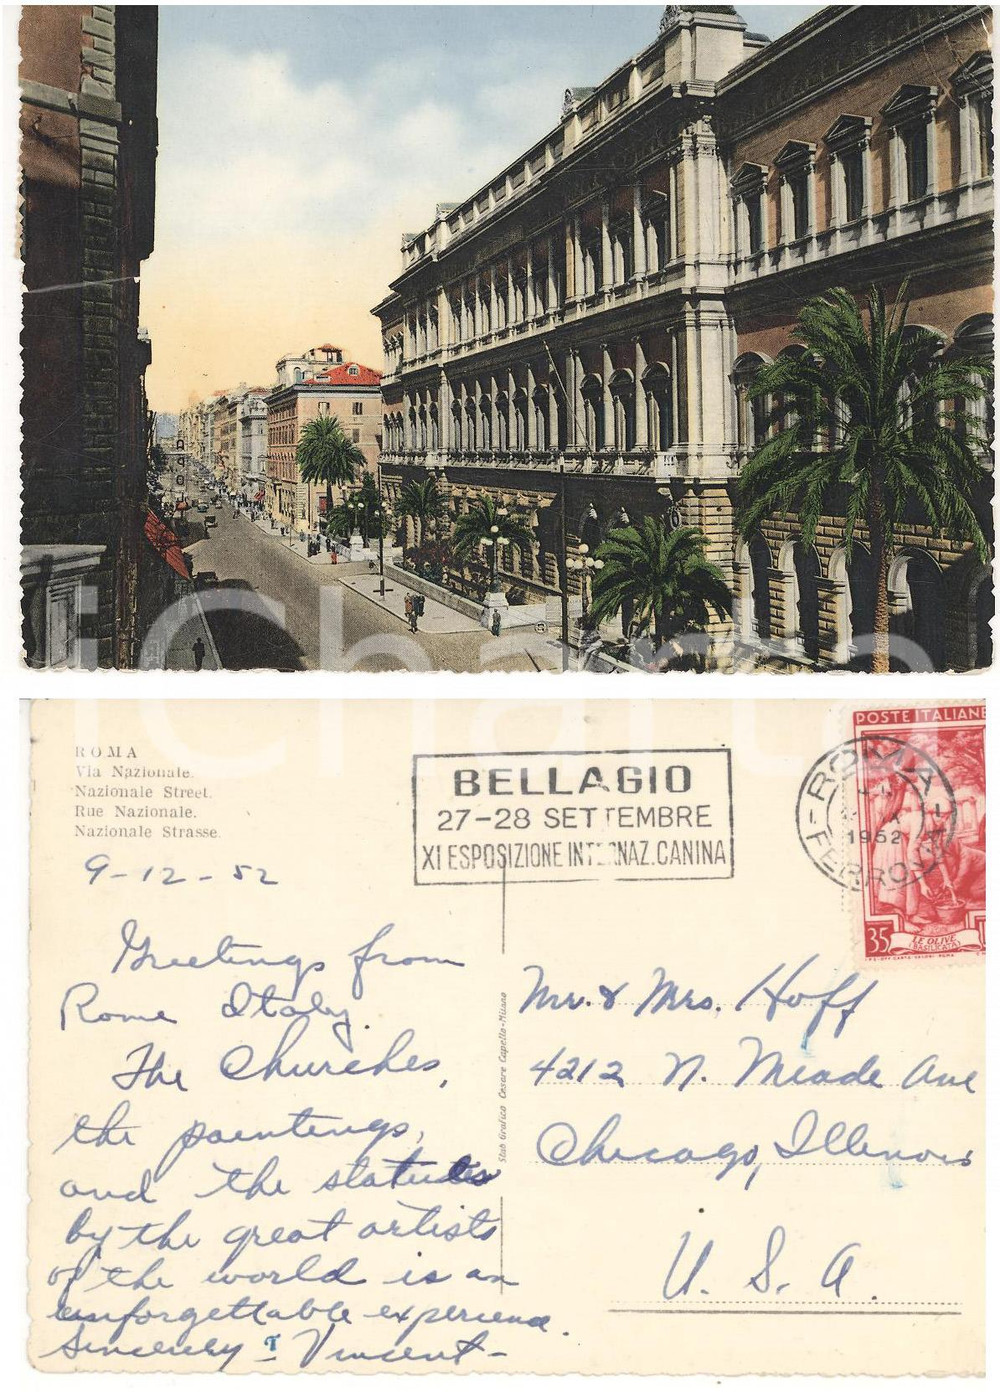 iCharta
ROMA
Via Nazionale.
Nazionale Street.
Rue Nazionale.
Nazionale Strasse.
BELLAGIO
27-28 SETTEMBRE
XI ESPOSIZIONE INTERNAZ. CANINA
ROMA
1952
FERROVIA
POSTE ITALIANE
35
LE OLIVE
(BASILICATA)
9-12-52
Greetings from
Rome Italy.
The Churches,
the paintings,
and the statues
by the great artists
of the world is an
unforgettable experience.
Sincerely Vincent-
Stab Grafico Cesare Capello-Milano
Mr. & Mrs. Hoff
4212 N. Meade Ave
Chicago, Illinois
U. S. A.